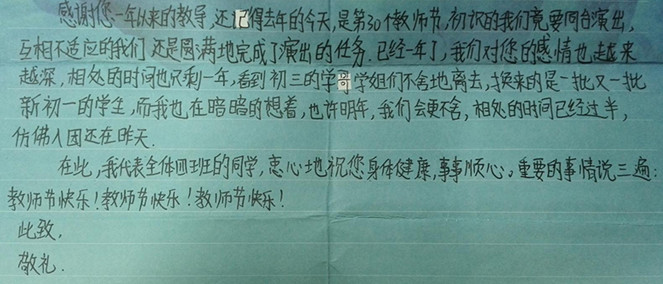 感谢您一年以来的教导,还记得去年的今天,是第30个教师节,初识的我们竟要同台演出,
互相不适应的我们还是圆满地完成了演出的任务.已经一年了,我们对您的感情也越来
越深,相处的时间也只剩一年,看到初三的学哥学姐们不舍地离去,换来的是一批又一批
新初一的学生,而我也在暗暗的想着,也许明年,我们会更不舍,相处的时间已经过半,
仿佛入团还在昨天.
在此,我代表全体四班的同学,衷心地祝您身体健康,事事顺心。重要的事情说三遍:
教师节快乐!教师节快乐!教师节快乐!
此致,
敬礼.